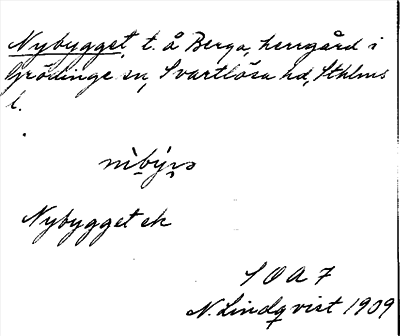 Nybygget, t. å Berga, herrgård i
Grödinge sn, Svartlösa hd, Sthlms
l.
Nybygget ek
S O A 7
N. Lindqvist 1909